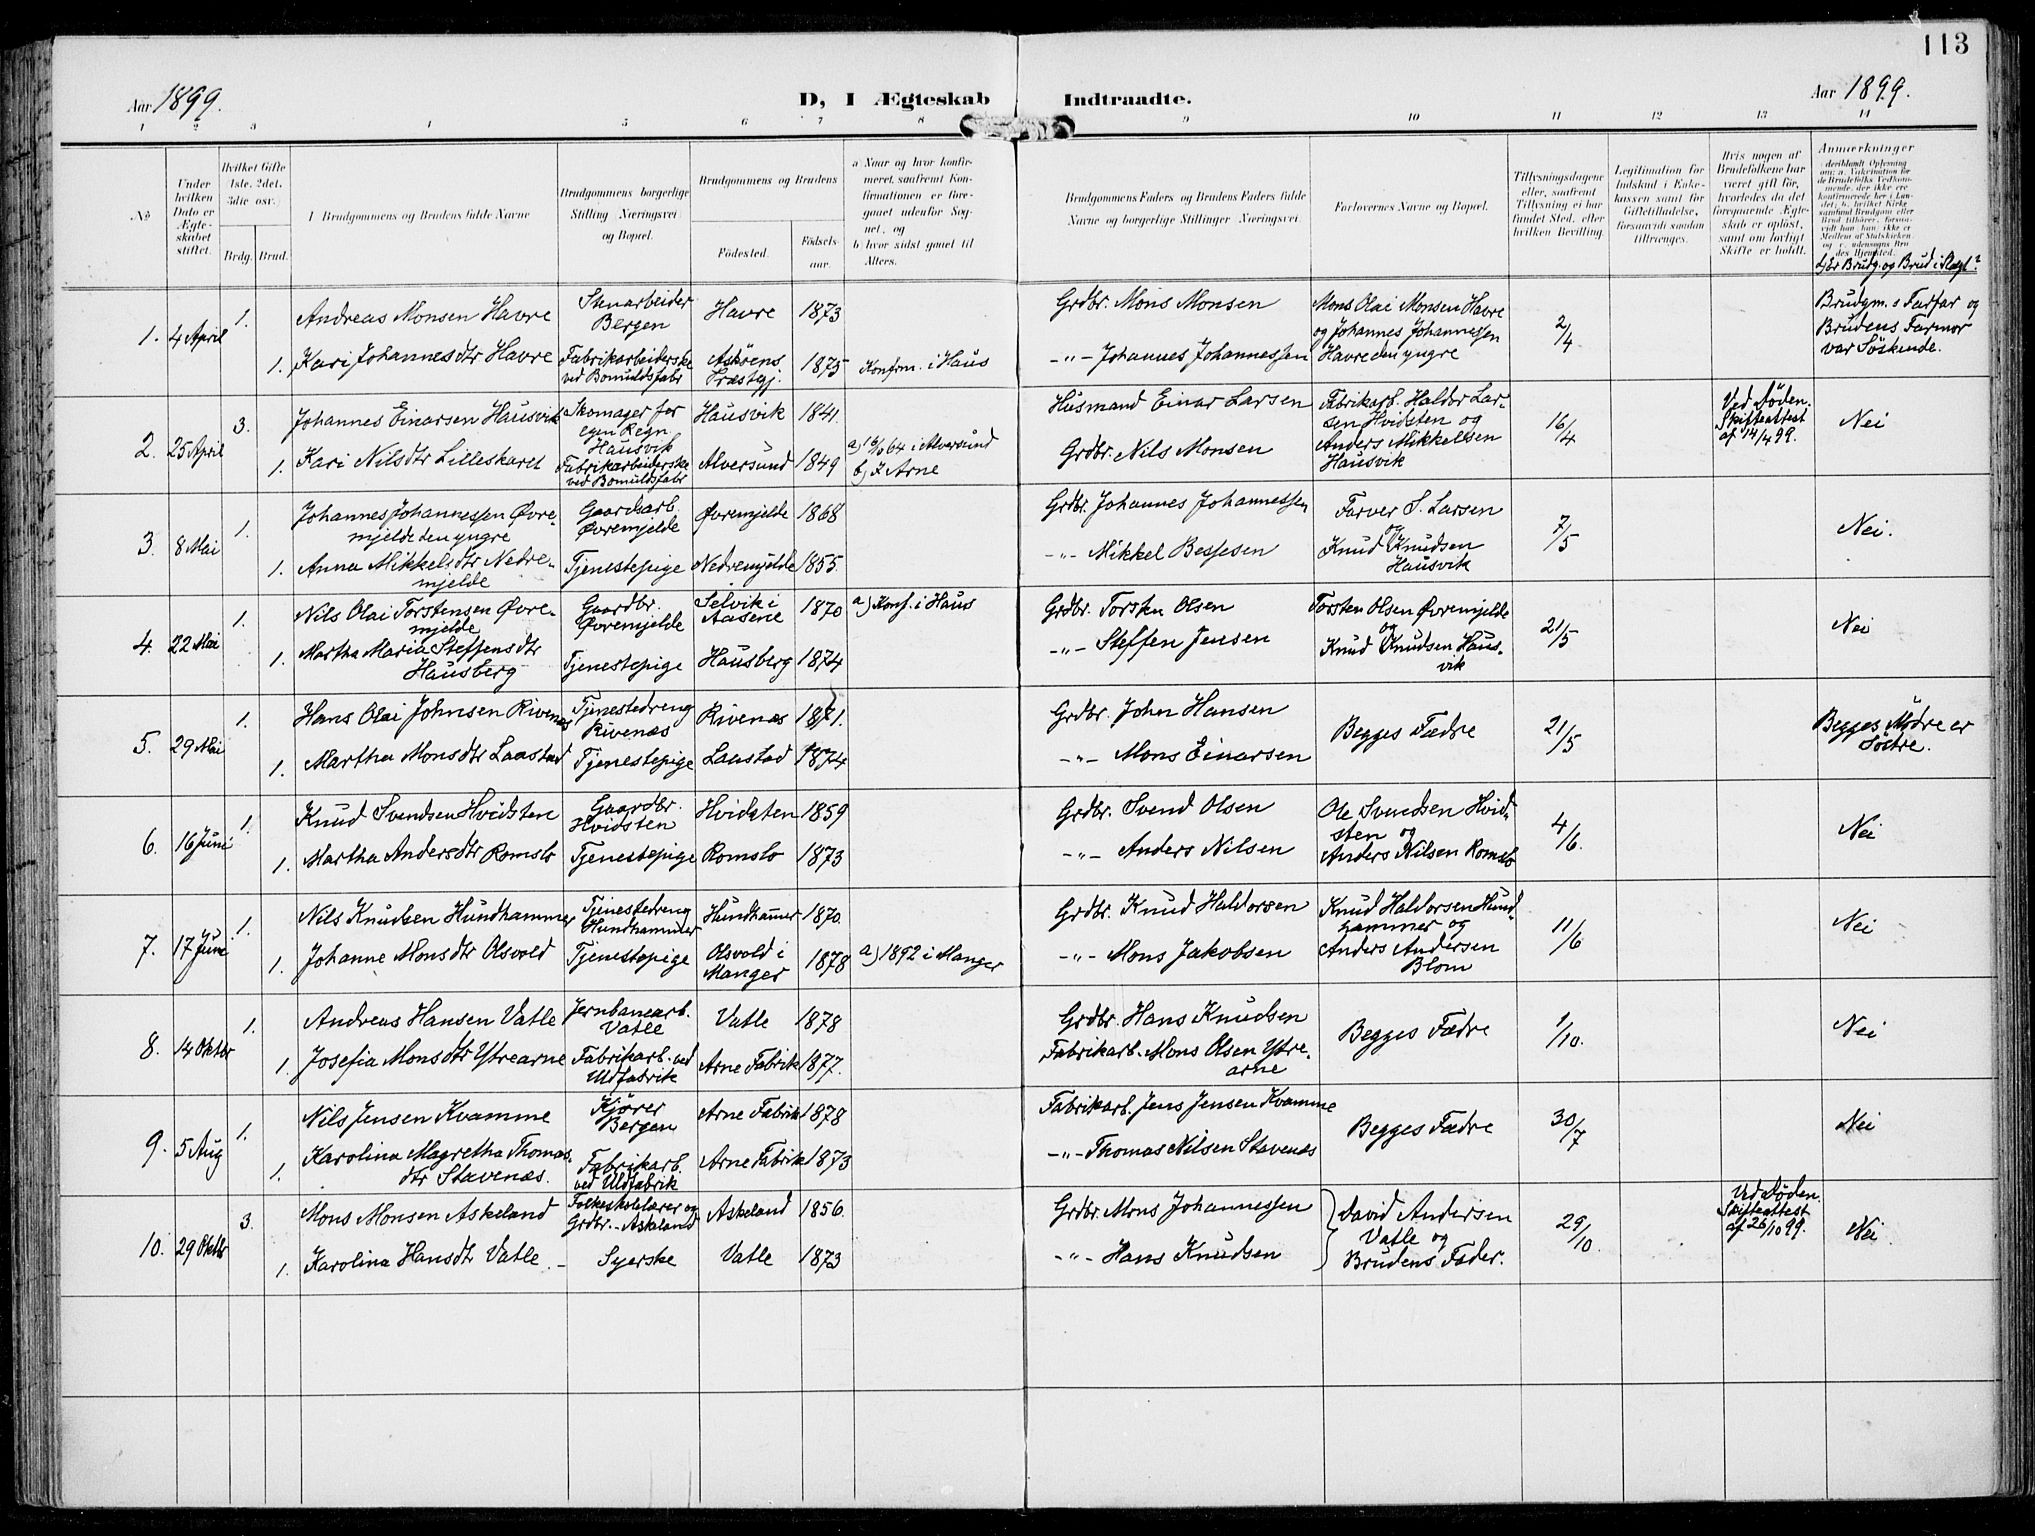 113
Aar 1899.
D, I Ægteskab Indtraadte.
Aar 1899.
1 2 3 4 5 6 7 8 9 10 11 12 13 14
No
Under hvilken Dato er Ægteskabet stiftet.
Hvilket Gifte 1ste, 2det, 3die osv.
Brdg. Brud.
Brudgommens og Brudens fulde Navne
Brudgommens borgerlige Stilling Næringsvei og Bopæl.
Brudgommens og Brudens
Födested.
Födselsaar.
a Naar og hvor konfirmeret, saafremt Konfirmationen er foregaaet udenfor Sognet, og
b hvor sidst gaaet til Alters.
Brudgommens Faders og Brudens Faders fulde Navne og borgerlige Stillinger Næringsvei.
Forlovernes Navne og Bopæl.
Tillysningsdagene eller, saafremt Tillysning ei har fundet Sted, efter hvilken Bevilling.
Legitimation for Indskud i Enkekassen samt for Giftetilladelse, forsaavidt saadan tiltrænges.
Hvis nogen af Brudefolkene har været gift för, hvorledes da det foregaaende Ægteskab er oplöst, samt om lovligt Skifte er holdt.
Anmærkninger
Er Brudg. og Brud i Slægt?
1. 4 April 1. Andreas Monsen Havre Stenarbeider Bergen Havre 1873 Grdbr. Mons Monsen Mons Olai Monsen Havre og Johannes Johannessen Havre den yngre 2/4 Brudgm.s Farfar og Brudens Farmor var Söskende.
1. Kari Johannesdtr Havre Fabrikarbeiderske ved Bomuldsfabr Præstgj. 1875 Konfirm. i Haus -"- Johannes Johannessen
2. 25 April 3. Johannes Einarsen Hausvik Skomager for egen Regn. Hausvik Hausvik 1841. Husmand Einar Larsen Fabrikarb. Haldor Larsen Hvidsten og Anders Mikkelsen Hausvik 16/4 Ved Døden. Skifteattest af 14/4 99. Nei
1. Kari Nilsdtr Lilleskaret Fabrikarbeiderske ved Bomuldsfabr Alversund 1849 64 i Alversund b) I Arne Grdbr. Nils Monsen
3. 8 Mai 1. Johannes Johannessen Øvremjelde den yngre Gaardsarb. Øvremjelde Øvremjelde 1868 Grdbr. Johannes Johannessen Farver S. Larsen og Knud Knudsen Hausvik 7/5 Nei.
1. Anna Mikkelsdtr Nedremjelde Tjenestepige Nedremjelde 1855. -"- Mikkel Bessesen
4. 22 Mai 1. Nils Olai Torstensen Øvremjelde Gaardbr. Øvremjelde Selvik i Aasene 1870 a) Konf. i Haus Grdbr. Torsten Olsen Torsten Olsen Øvremjelde og Knud Knudsen Hausvik 21/5 Nei
1. Martha Maria Steffensdtr Hausberg Tjenestepige Hausberg 1874 -"- Steffen Jensen
5. 29 Mai 1. Hans Olai Johnsen Rivenæs Tjenestedreng Rivenæs Rivenæs 1871. Grdbr. John Hansen Begges Fædre 21/5 Begges Mødre er Söstre.
1. Martha Monsdtr Laastad Tjenestepige Laastad 1874 -"- Mons Einarsen
6. 16 Juni 1. Knud Svendsen Hvidsten Gaardbr. Hvidsten Hvidsten 1859 Grdbr. Svend Olsen Ole Svendsen Hvidsten og Anders Nilsen Romslo 4/6. Nei
1. Martha Andersdtr Romslo Tjenestepige Romslo 1873 -"- Anders Nilsen
7. 17 Juni 1. Nils Knudsen Hundhammer Tjenestedreng Hundhammer Hundhamer 1870. Grdbr. Knud Haldorsen Knud Haldorsen Hundhammer og Anders Andersen Blom 11/6 Nei
1. Johanne Monsdtr Olsvold Tjenestepige Olsvold i Manger 1878 a) 1892 i Manger -"- Mons Jakobsen
8. 14 Oktbr 1. Andreas Hansen Vatle Jernbanearb. Vatle Vatle 1878 Grdbr. Hans Knudsen Begges Fædre 1/10. Nei
1. Josefia Monsdtr Ytrearne Fabrikarb. ved Uldfabrik Arne Fabrik 1877. Fabrikarb. Mons Olsen Ytrearne
9. 5 Aug 1. Nils Jensen Kvamme Kjører Bergen Arne Fabrik 1878 Fabrikarb. Jens Jensen Kvamme Begges Fædre 30/7 Nei
1. Karolina Magretha Thomasdtr Stavenæs. Fabrikarb. ved Uldfabrik Arne Fabrik 1873 -"- Thomas Nilsen Stavenæs
10. 29 Oktbr 3. Mons Monsen Askeland Folkeskolelærer og Grdbr. - Askeland Askeland 1856. Grdbr. Mons Johannessen David Andersen Vatle og Brudens Fader. 29/10. Ved Døden. Skifteattest af 26/10 99. Nei
1. Karolina Hansdtr Vatle. - Syerske Vatle 1873 -"- Hans Knudsen